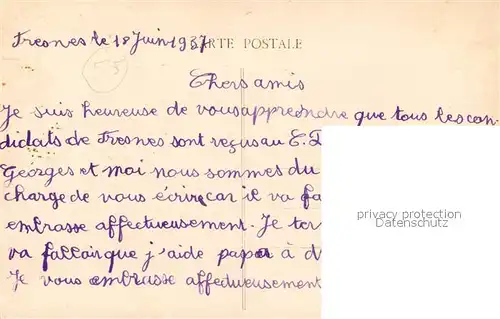 Fresnes le 18 Juin 1937 CARTE POSTALE
55
Chers amis
Je suis heureuse de vous apprendre que tous les can
didats de Fresnes sont reçus au C.
Georges et moi nous sommes du
charge de vous écrire car il va
embrasse affectueusement. Je
va fallair que j'aide papa à
Je vous embrasse affectueusement
privacy protection
Datenschutz